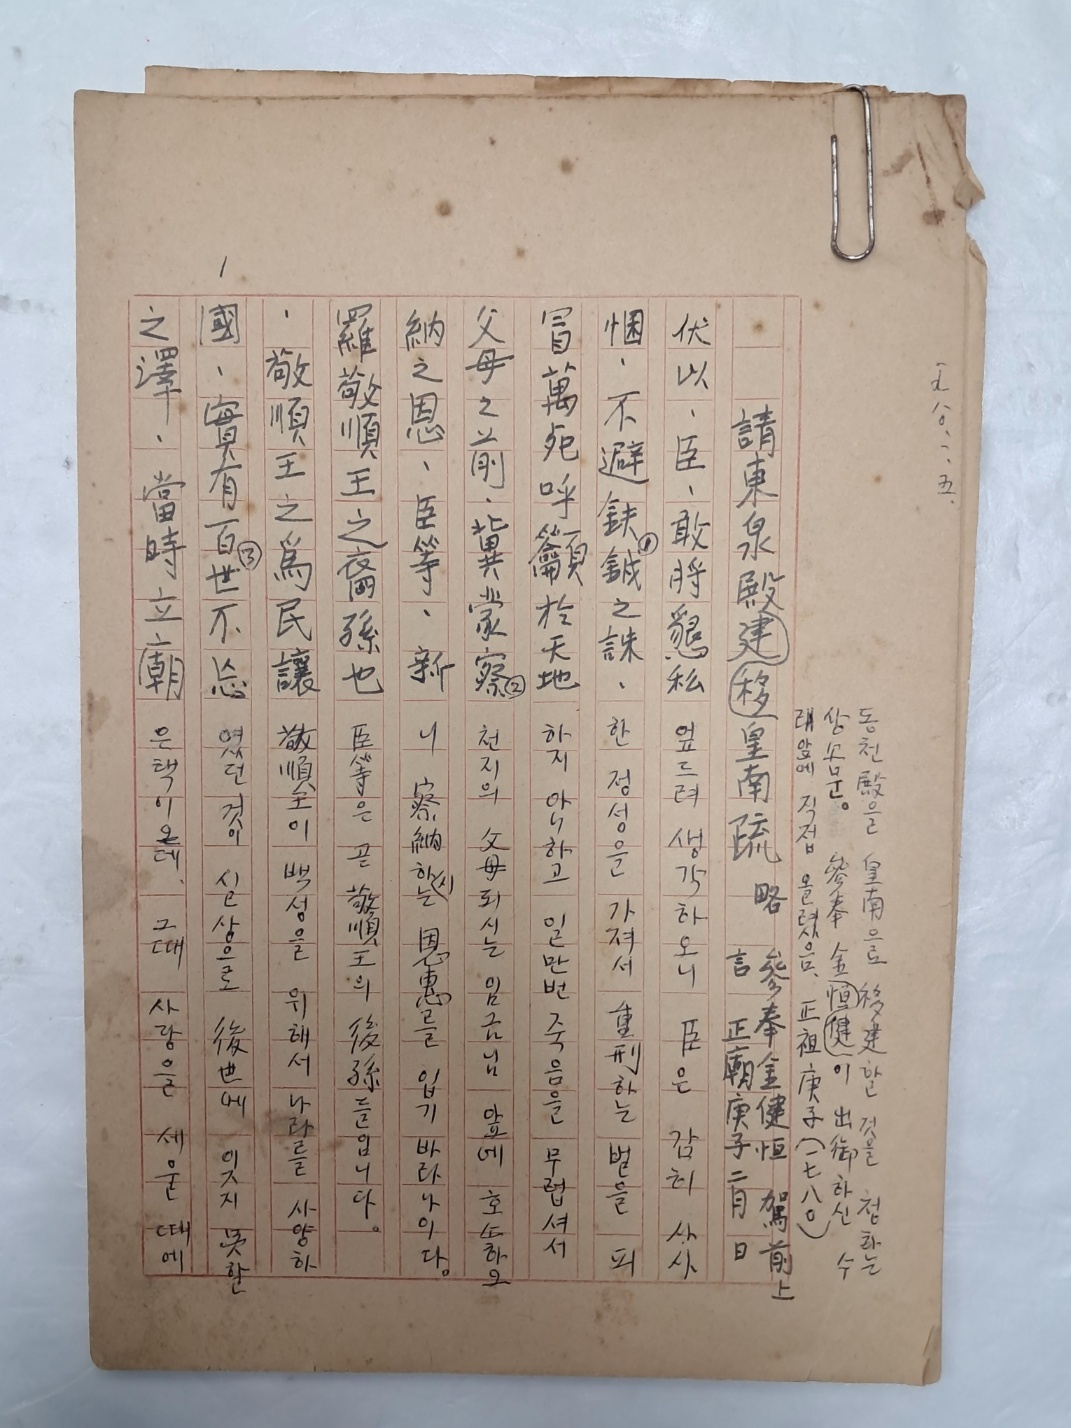 五.八〇.一.五.
동천殿을 皇南으로 移建할 것을 청하는
상소문。 參奉 金恒健이 出御하신 수
래앞에 직접 올렸음. 正祖庚子(一七八〇)
請東泉殿建移皇南疏 略 參奉金健恒 駕前上
言 正廟庚子二月 日
伏以、臣、敢將懇私 엎드려 생각하오니 臣은 감히 사사
悃、不避鈇鉞①之誅、 한 정성을 가져서 重刑하는 벌을 피
冒萬死呼籲於天地 하지 아니하고 일만번 죽음을 무렵셔서
父母之前、冀蒙察② 천지의 父母되시는 임금님 앞에 호소하오
納之恩、臣等、新 니 察納하시는 恩惠를 입기 바라나이다。
羅敬順王之裔孫也 臣等은 곧 敬順王의 後孫들입니다。
、敬順王之爲民讓 敬順王이 백성을 위해서 나라를 사양하
國、實有百世③不忘 였던 것이 실상으로 後世에 잊지 못할
之澤、當時立廟 은택이온데、그때 사당을 세울 때에
1